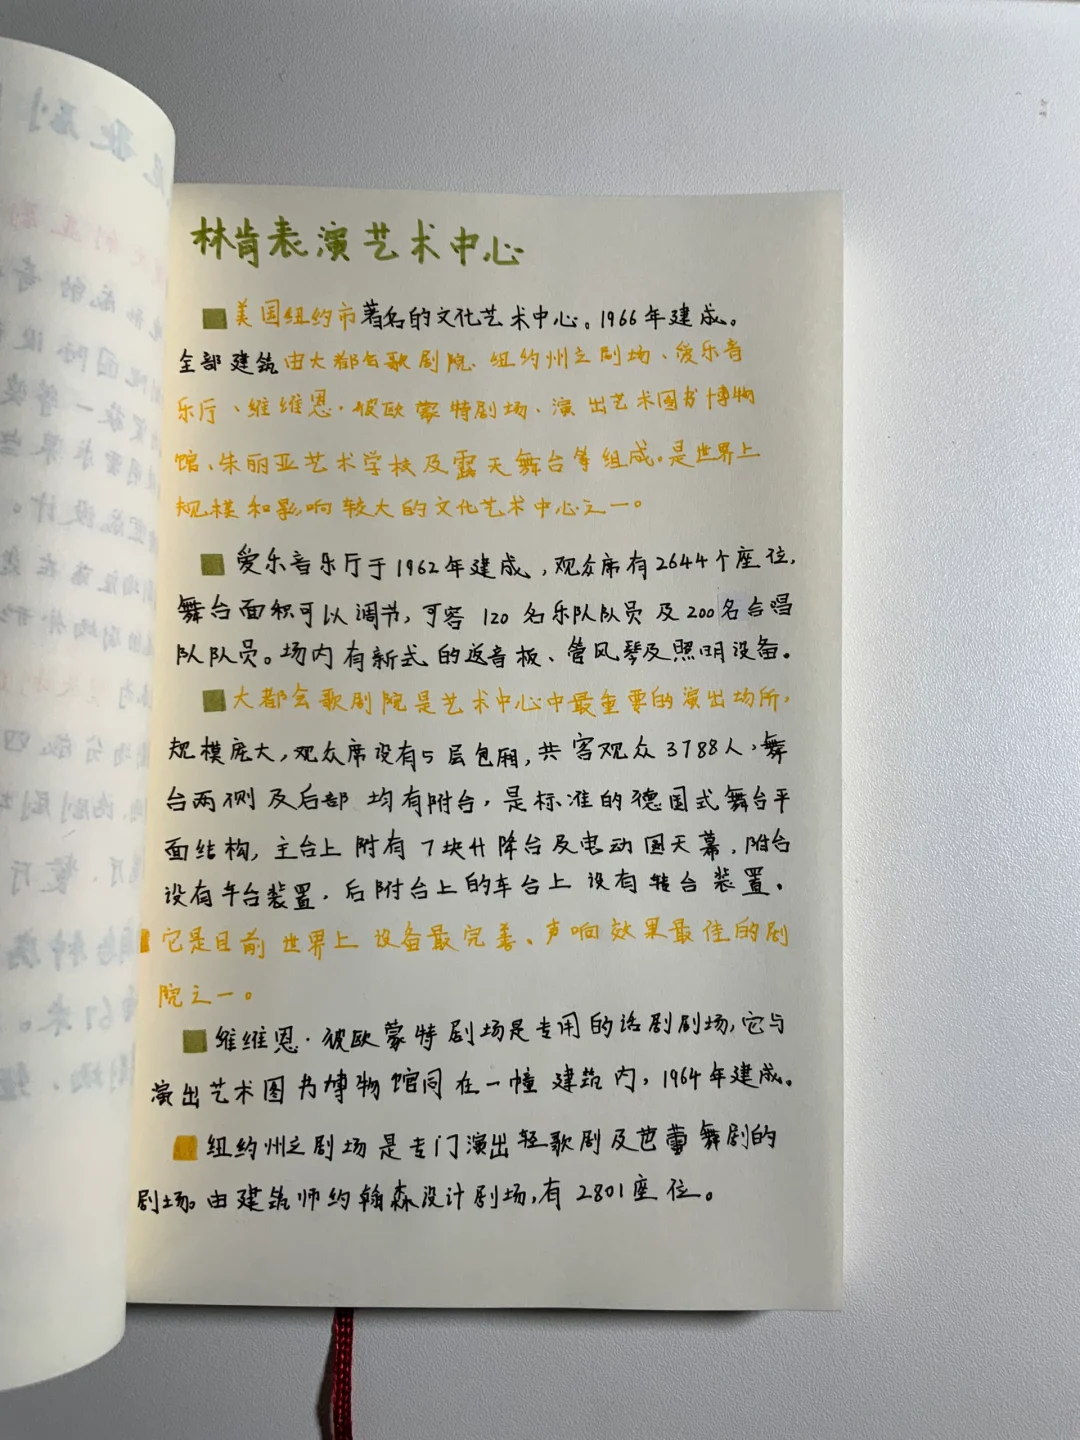 林肯表演艺术中心
美国纽约市著名的文化艺术中心。1966年建成。
全部建筑由大都会歌剧院、纽约州之剧场、爱乐音
乐厅、维维恩·彼欧蒙特剧场、演出艺术图书博物
馆、朱丽亚艺术学校及露天舞台等组成。是世界上
规模和影响较大的文化艺术中心之一。
爱乐音乐厅于1962年建成,观众席有2644个座位,
舞台面积可以调节,可容120名乐队队员及200名合唱
队队员。场内有新式的返音板、管风琴及照明设备。
大都会歌剧院是艺术中心中最重要的演出场所,
规模庞大,观众席设有5层包厢,共容观众3788人,舞
台两侧及后部均有附台,是标准的德国式舞台平
面结构,主台上附有7块升降台及电动圆天幕,附台
设有车台装置,后附台上的车台上设有转台装置。
它是目前世界上设备最完善、声响效果最佳的剧
院之一。
维维恩·彼欧蒙特剧场是专用的话剧剧场,它与
演出艺术图书博物馆同在一幢建筑内,1964年建成。
纽约州之剧场是专门演出轻歌剧及芭蕾舞剧的
剧场。由建筑师约翰森设计剧场,有2801座位。